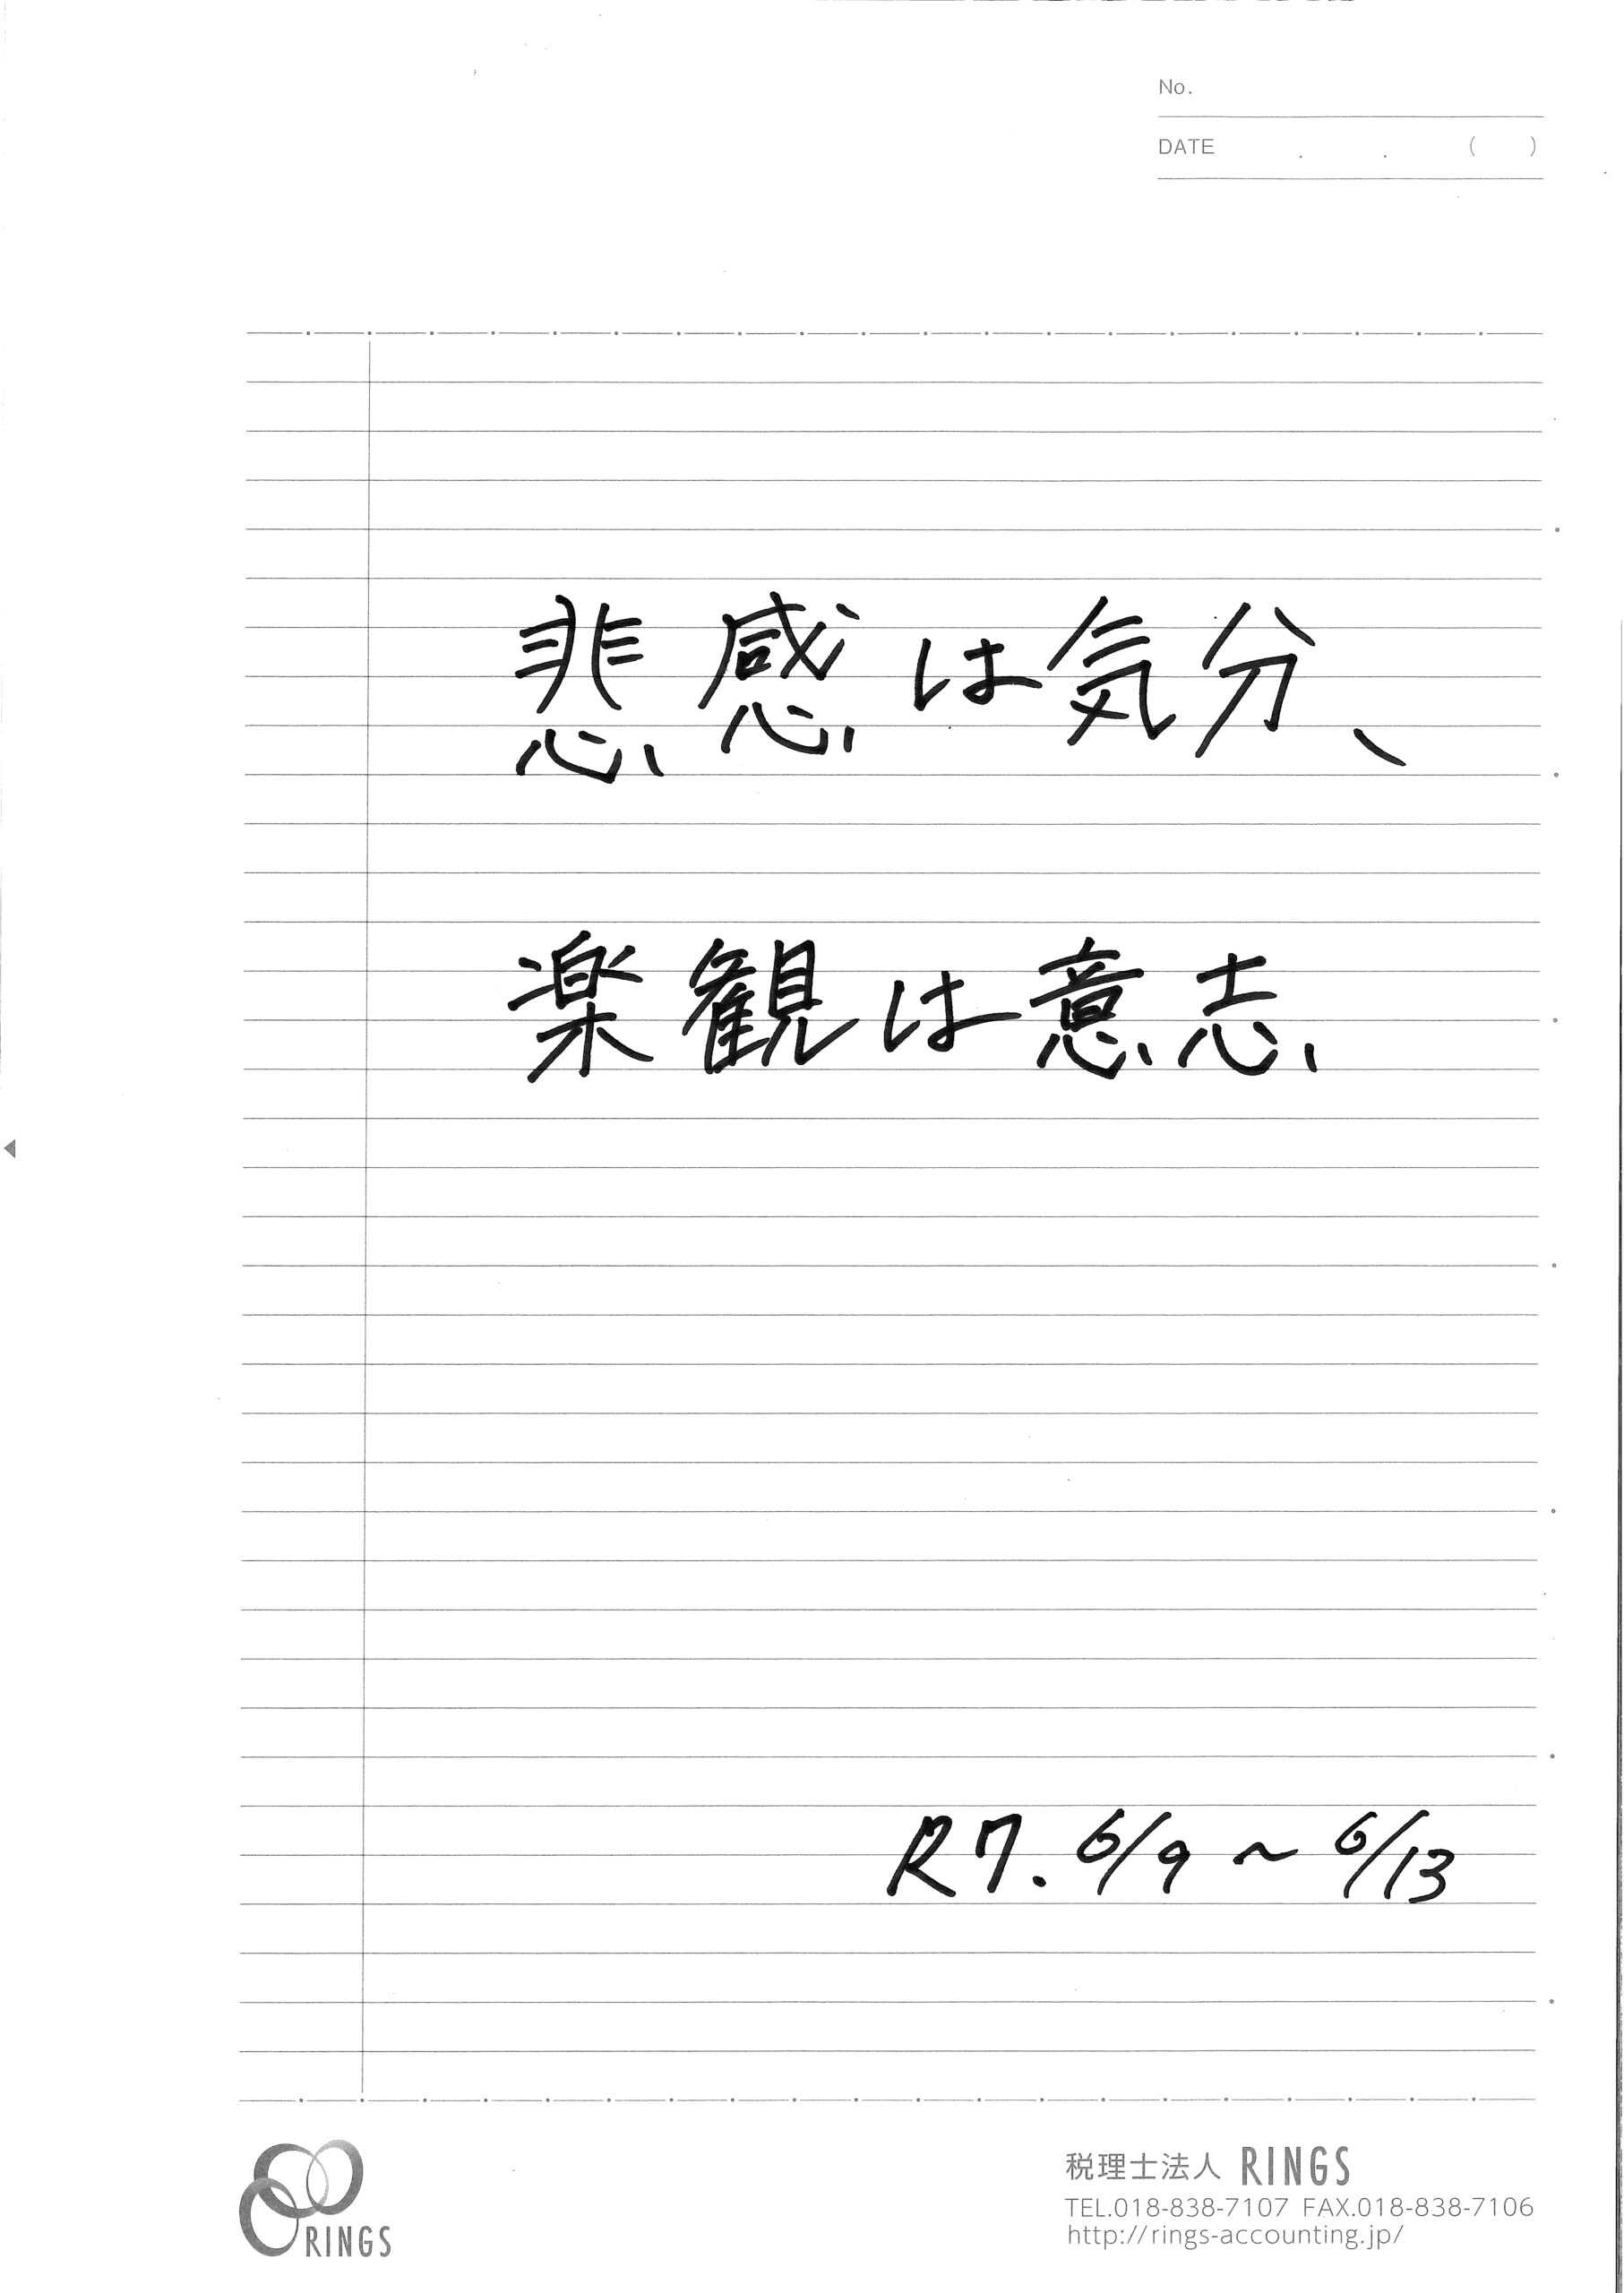 No.
DATE . . ( )
悲感は気分、
楽観は意志
R7. 6/9 ~ 6/13
RINGS
税理士法人 RINGS
TEL.018-838-7107 FAX.018-838-7106
http://rings-accounting.jp/